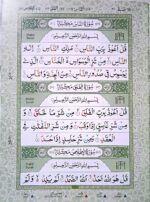 سُوْرَةُ النَّاسِ مَكِّيَّةٌ
بِسْمِ اللهِ الرَّحْمٰنِ الرَّحِيْمِ
قُلْ اَعُوْذُ بِرَبِّ النَّاسِ مَلِكِ النَّاسِ
اِلٰهِ النَّاسِ مِنْ شَرِّ الْوَسْوَاسِ الْخَنَّاسِ الَّذِيْ
يُوَسْوِسُ فِيْ صُدُوْرِ النَّاسِ مِنَ الْجِنَّةِ وَالنَّاسِ
سُوْرَةُ الْفَلَقِ مَكِّيَّةٌ
بِسْمِ اللهِ الرَّحْمٰنِ الرَّحِيْمِ
قُلْ اَعُوْذُ بِرَبِّ الْفَلَقِ مِنْ شَرِّ مَا خَلَقَ وَ
مِنْ شَرِّ غَاسِقٍ اِذَا وَقَبَ وَمِنْ شَرِّ النَّفّٰثٰتِ فِي
الْعُقَدِ وَمِنْ شَرِّ حَاسِدٍ اِذَا حَسَدَ
بِسْمِ اللهِ الرَّحْمٰنِ الرَّحِيْمِ
قُلْ هُوَ اللهُ اَحَدٌ اَللهُ الصَّمَدُ لَمْ يَلِدْ وَلَمْ